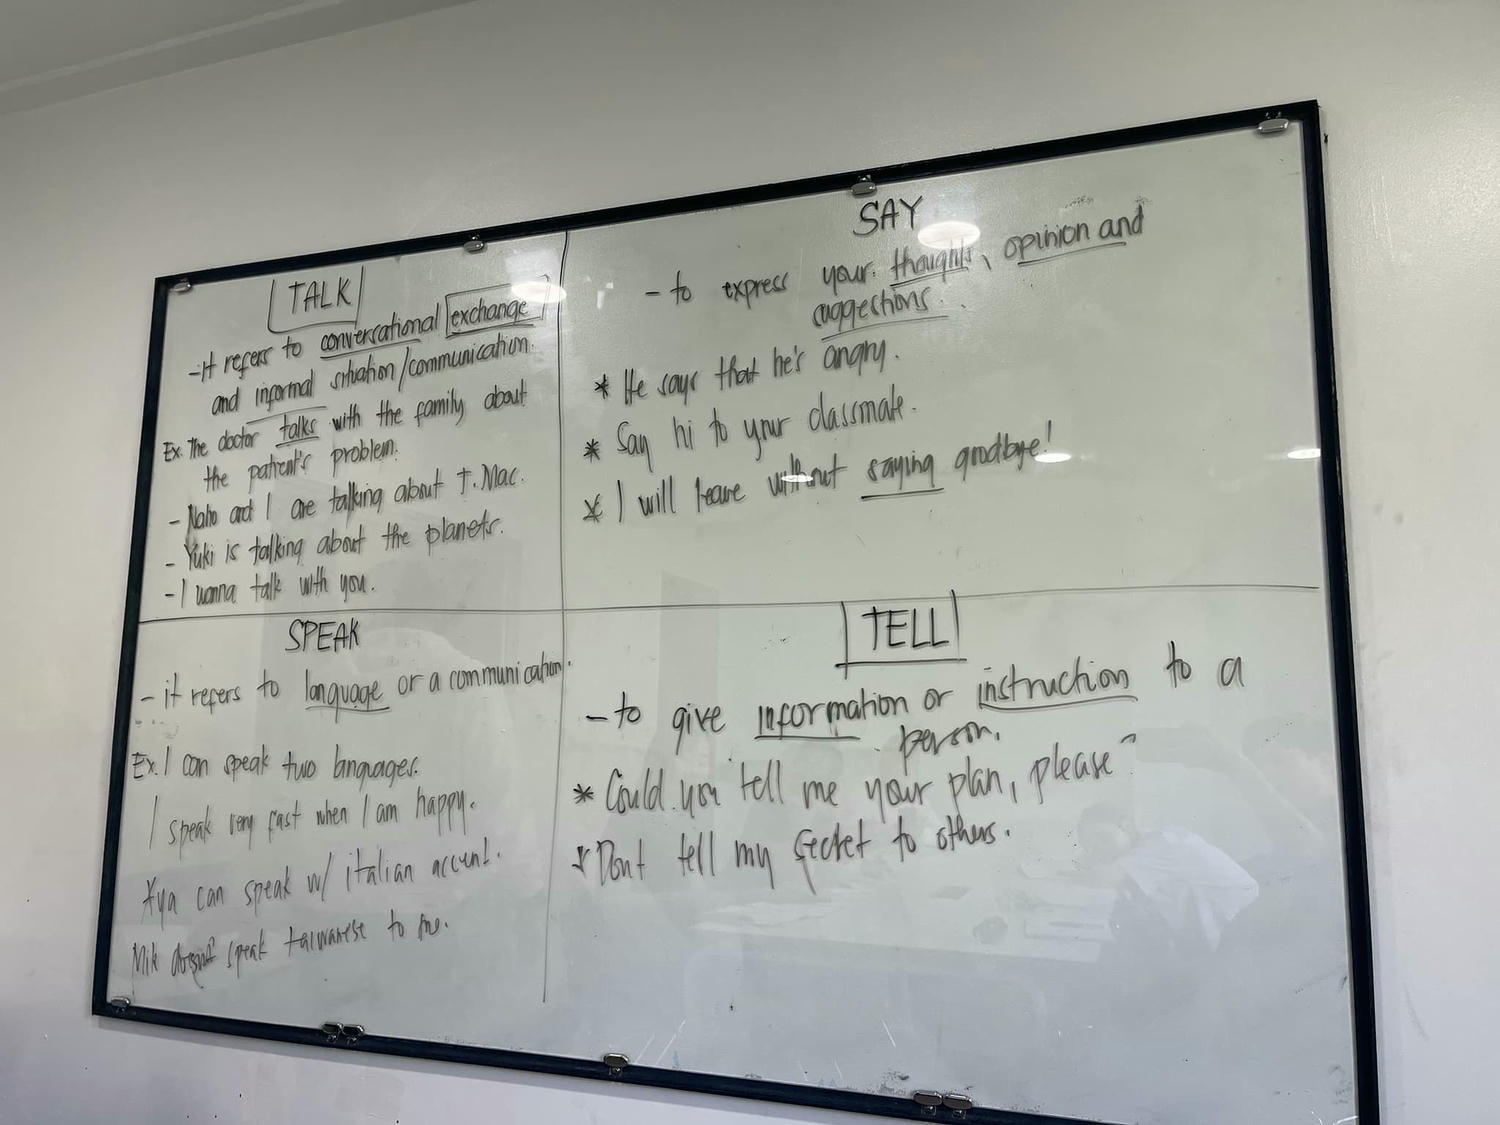 TALK
-it refers to conversational exchange
and informal situation/communication.
Ex. The doctor talks with the family about
the patient's problem.
- Naho and I are talking about T. Mac.
- Yuki is talking about the planets.
- I wanna talk with you.
SAY
- to express your thoughts, opinion and
suggestions.
* He says that he's angry.
* Say hi to your classmate.
* I will leave without saying goodbye!
SPEAK
- it refers to language or a communication.
Ex. I can speak two languages.
I speak very fast when I am happy.
Aya can speak w/ italian accent.
Mik doesn't speak taiwanese to me.
TELL
- to give information or instruction to a
person.
* Could you tell me your plan, please?
* Dont tell my secret to others.